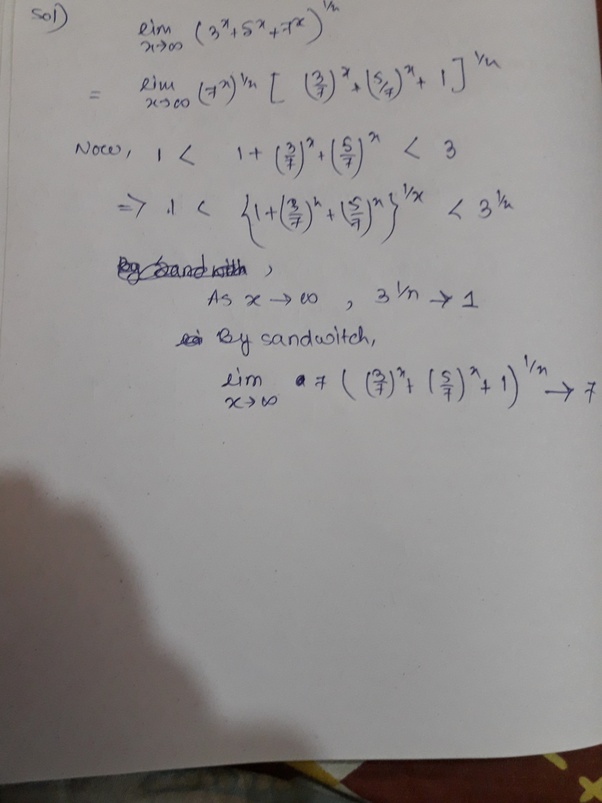 Sol)
lim x→∞ (3^x + 5^x + 7^x)^1/x
= lim x→∞ (7^x)^1/x [ (3/7)^x + (5/7)^x + 1 ]^1/x
Now, 1 < 1 + (3/7)^x + (5/7)^x < 3
⇒ 1 < {1 + (3/7)^x + (5/7)^x}^1/x < 3^1/x
As x → ∞, 3^1/x → 1
By sandwitch,
lim x→∞ 7 ( (3/7)^x + (5/7)^x + 1 )^1/x → 7